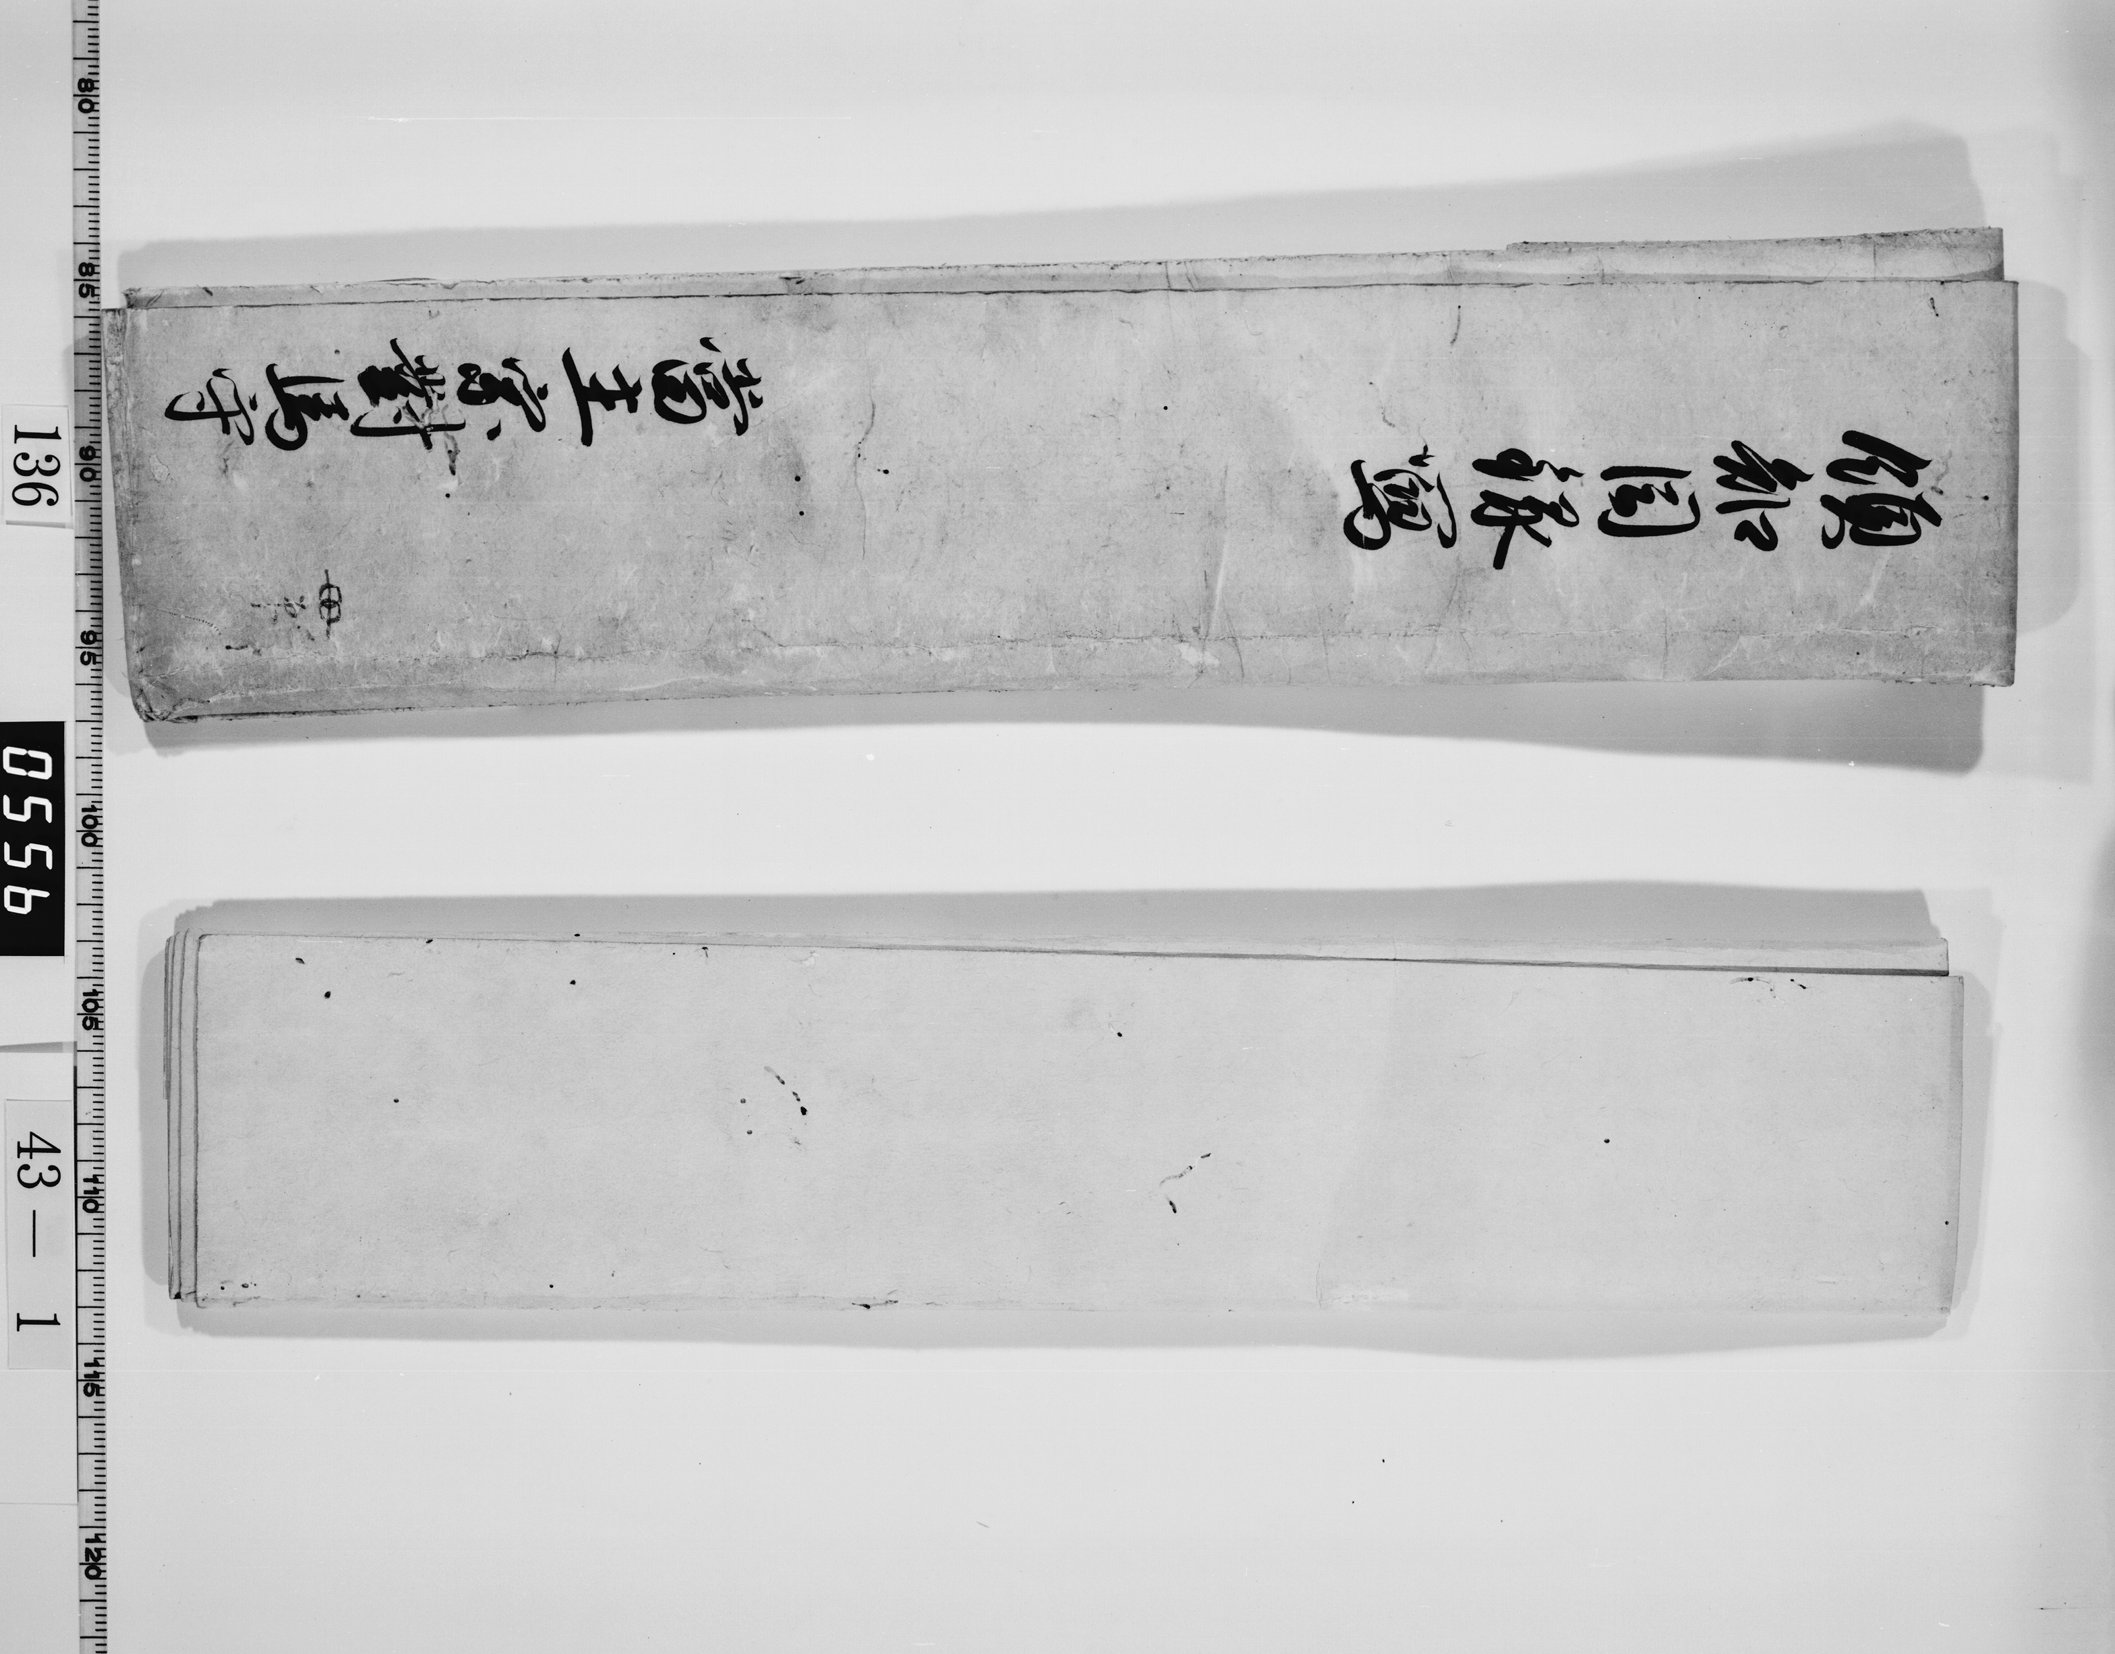 領知目録寫
對馬守
136
0556
43—1
80
85
90
95
100
105
110
115
120